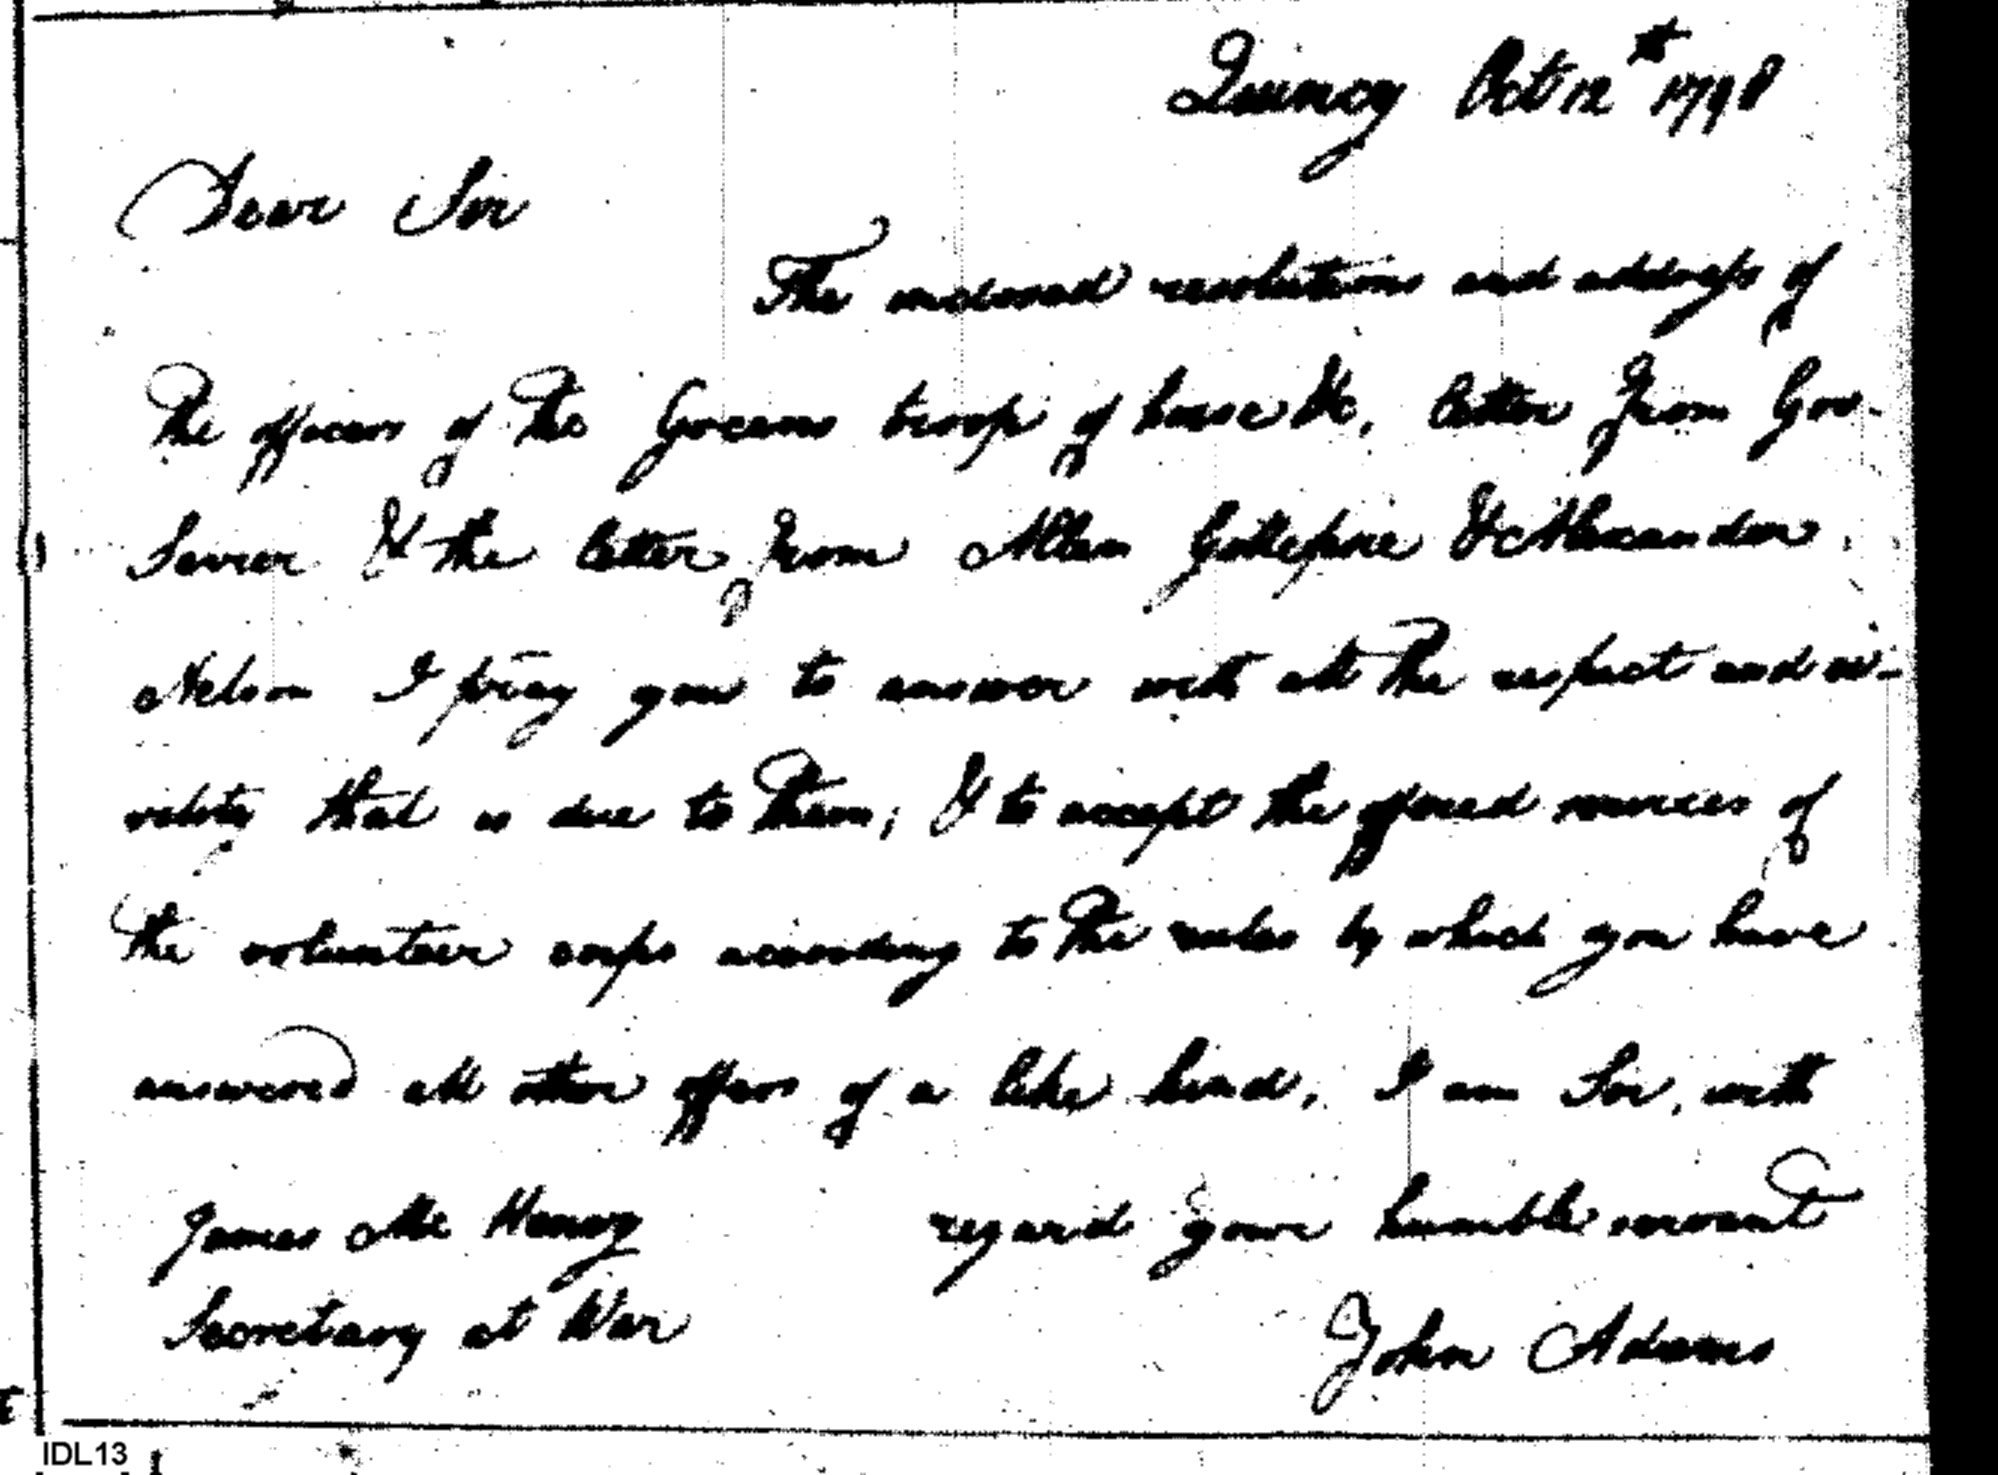 Quincy Oct 12th 1798
Dear Sir
The inclosed resolutions and address of
the officers of the Greens troop of horse &c, letter from Gov.
Sevier & the letter from Allen Gillespie & Alexander
Nelson I pray you to answer with all the respect and ci-
vility that is due to them; & to accept the offered services of
the volunteer corps according to the rules by which you have
answered all other offers of a like kind. I am Sir, with
James McHenry regard your humble servant
Secretary at War
John Adams
IDL13